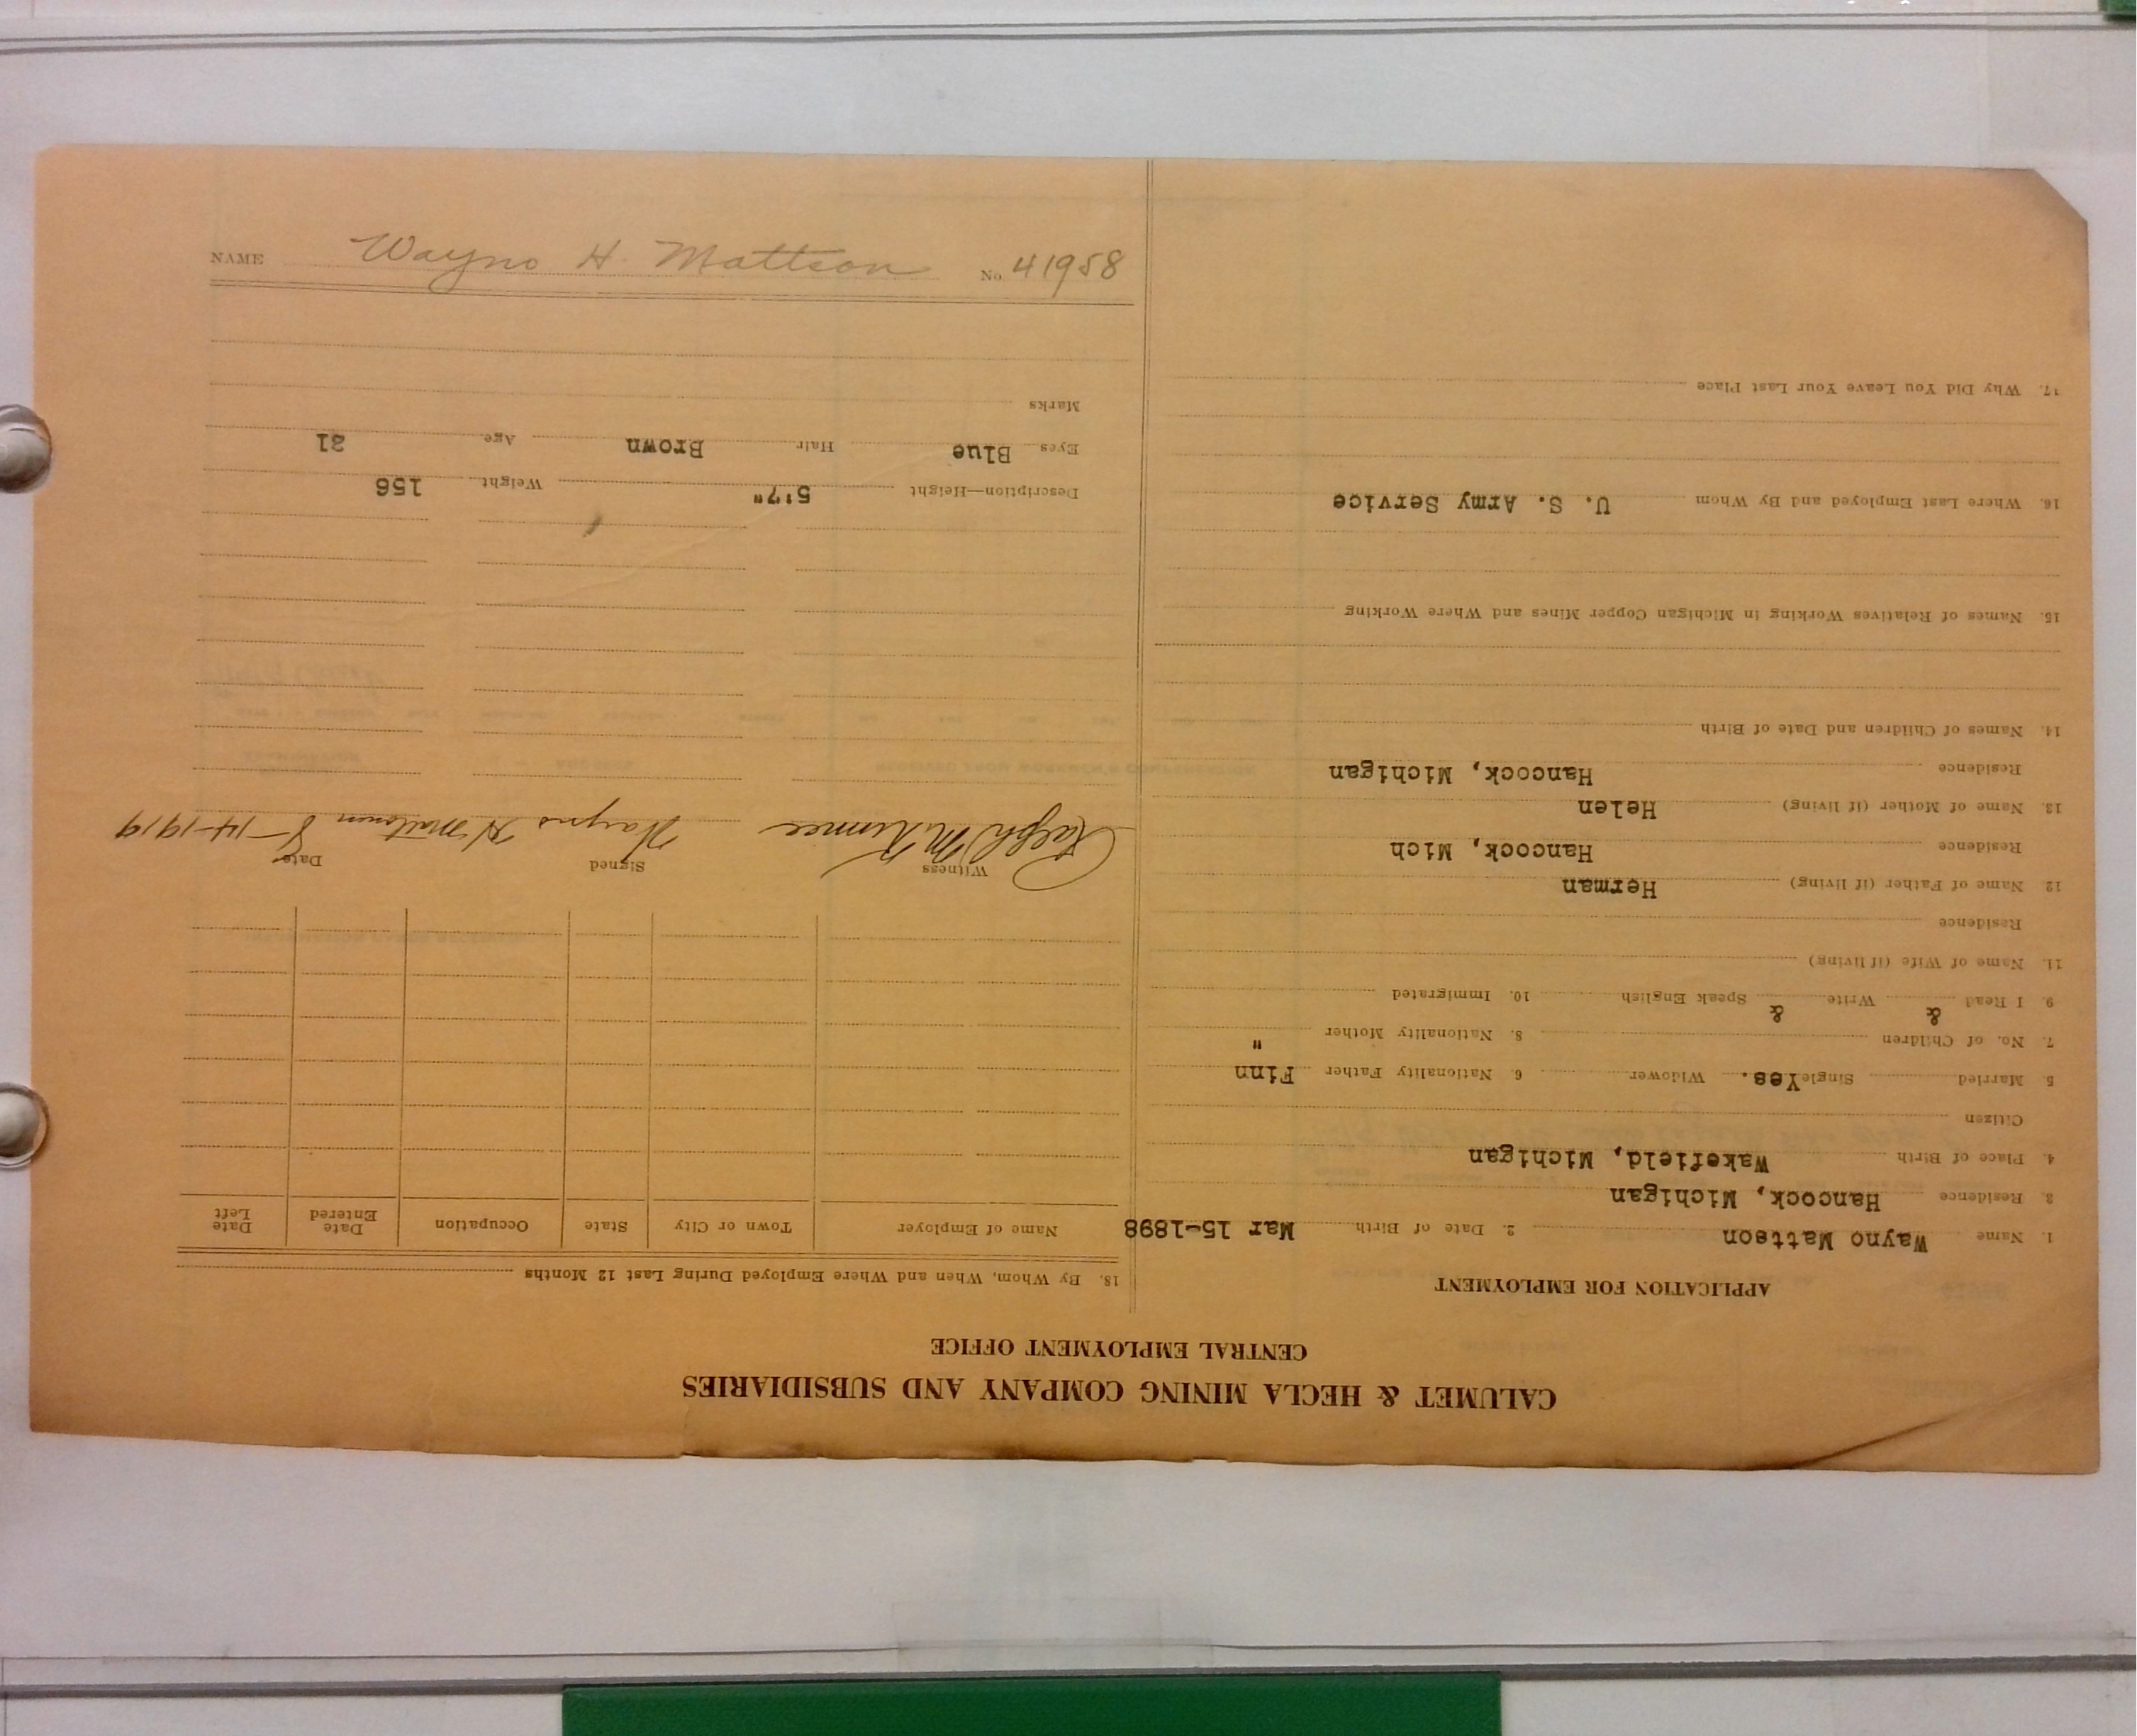 CALUMET & HECLA MINING COMPANY AND SUBSIDIARIES
CENTRAL EMPLOYMENT OFFICE
APPLICATION FOR EMPLOYMENT
1. Name Wayno Mattson 2. Date of Birth Mar 15-1898
3. Residence Hancock, Michigan
4. Place of Birth Wakefield, Michigan
Citizen
5. Married Single Yes. Widower 6. Nationality Father Finn
7. No. of Children 8. Nationality Mother "
9. I Read & Write & Speak English 10. Immigrated
11. Name of Wife (if living)
Residence
12 Name of Father (if living) Herman
Residence Hancock, Mich
13. Name of Mother (if living) Helen
Residence Hancock, Michigan
14. Names of Children and Date of Birth
15. Names of Relatives Working in Michigan Copper Mines and Where Working
16. Where Last Employed and By Whom U. S. Army Service
17. Why Did You Leave Your Last Place
18. By Whom, When and Where Employed During Last 12 Months
Name of Employer Town or City State Occupation Date Entered Date Left
Witness Signed Date
Ralph Wayno H Mattson 8-14-1919
Description—Height 5'7" Weight 156
Eyes Blue Hair Brown Age 21
Marks
NAME Wayno H. Mattson No. 41958